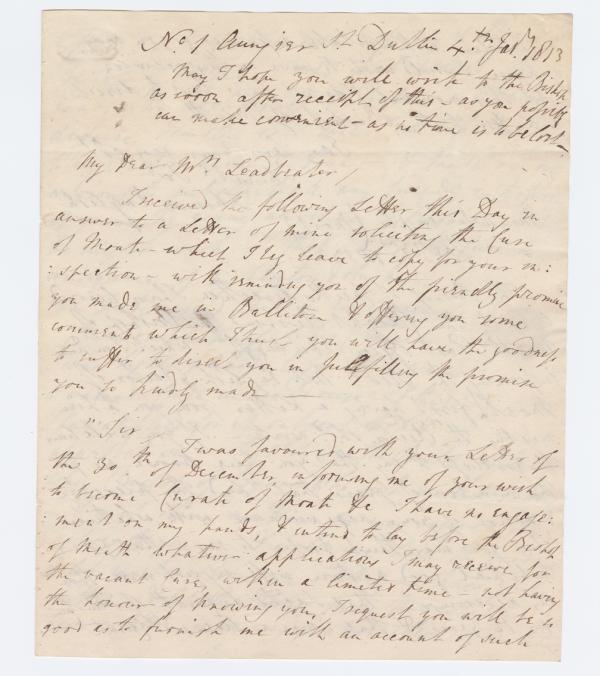 No. 1 Aungier St. Dublin 4.th Jan.y 1813
May I hope you will write to the Bishop
as soon after receipt of this - as you possibly
can make convenient - as no time is to be lost -
My Dear Mrs. Leadbeater,
I received the following Letter this Day in
answer to a Letter of mine soliciting the Cure
of Moate - which I beg leave to copy for your in:
:spection - with reminding you of the friendly promise
you made me in Ballitore & offering you some
comments which I trust you will have the goodness
to suffer to direct you in fulfilling the promise
you so kindly made -
"Sir
I was favoured with your Letter of
the 30.th of December, informing me of your wish
to become Curate of Moate &c I have no engage:
ment on my hands, & intend to lay before the Bishop
of Meath whatever applications I may receive for
the vacant Cure, within a limited time - not having
the honour of knowing you, I request you will be so
good as to furnish me with an account of such